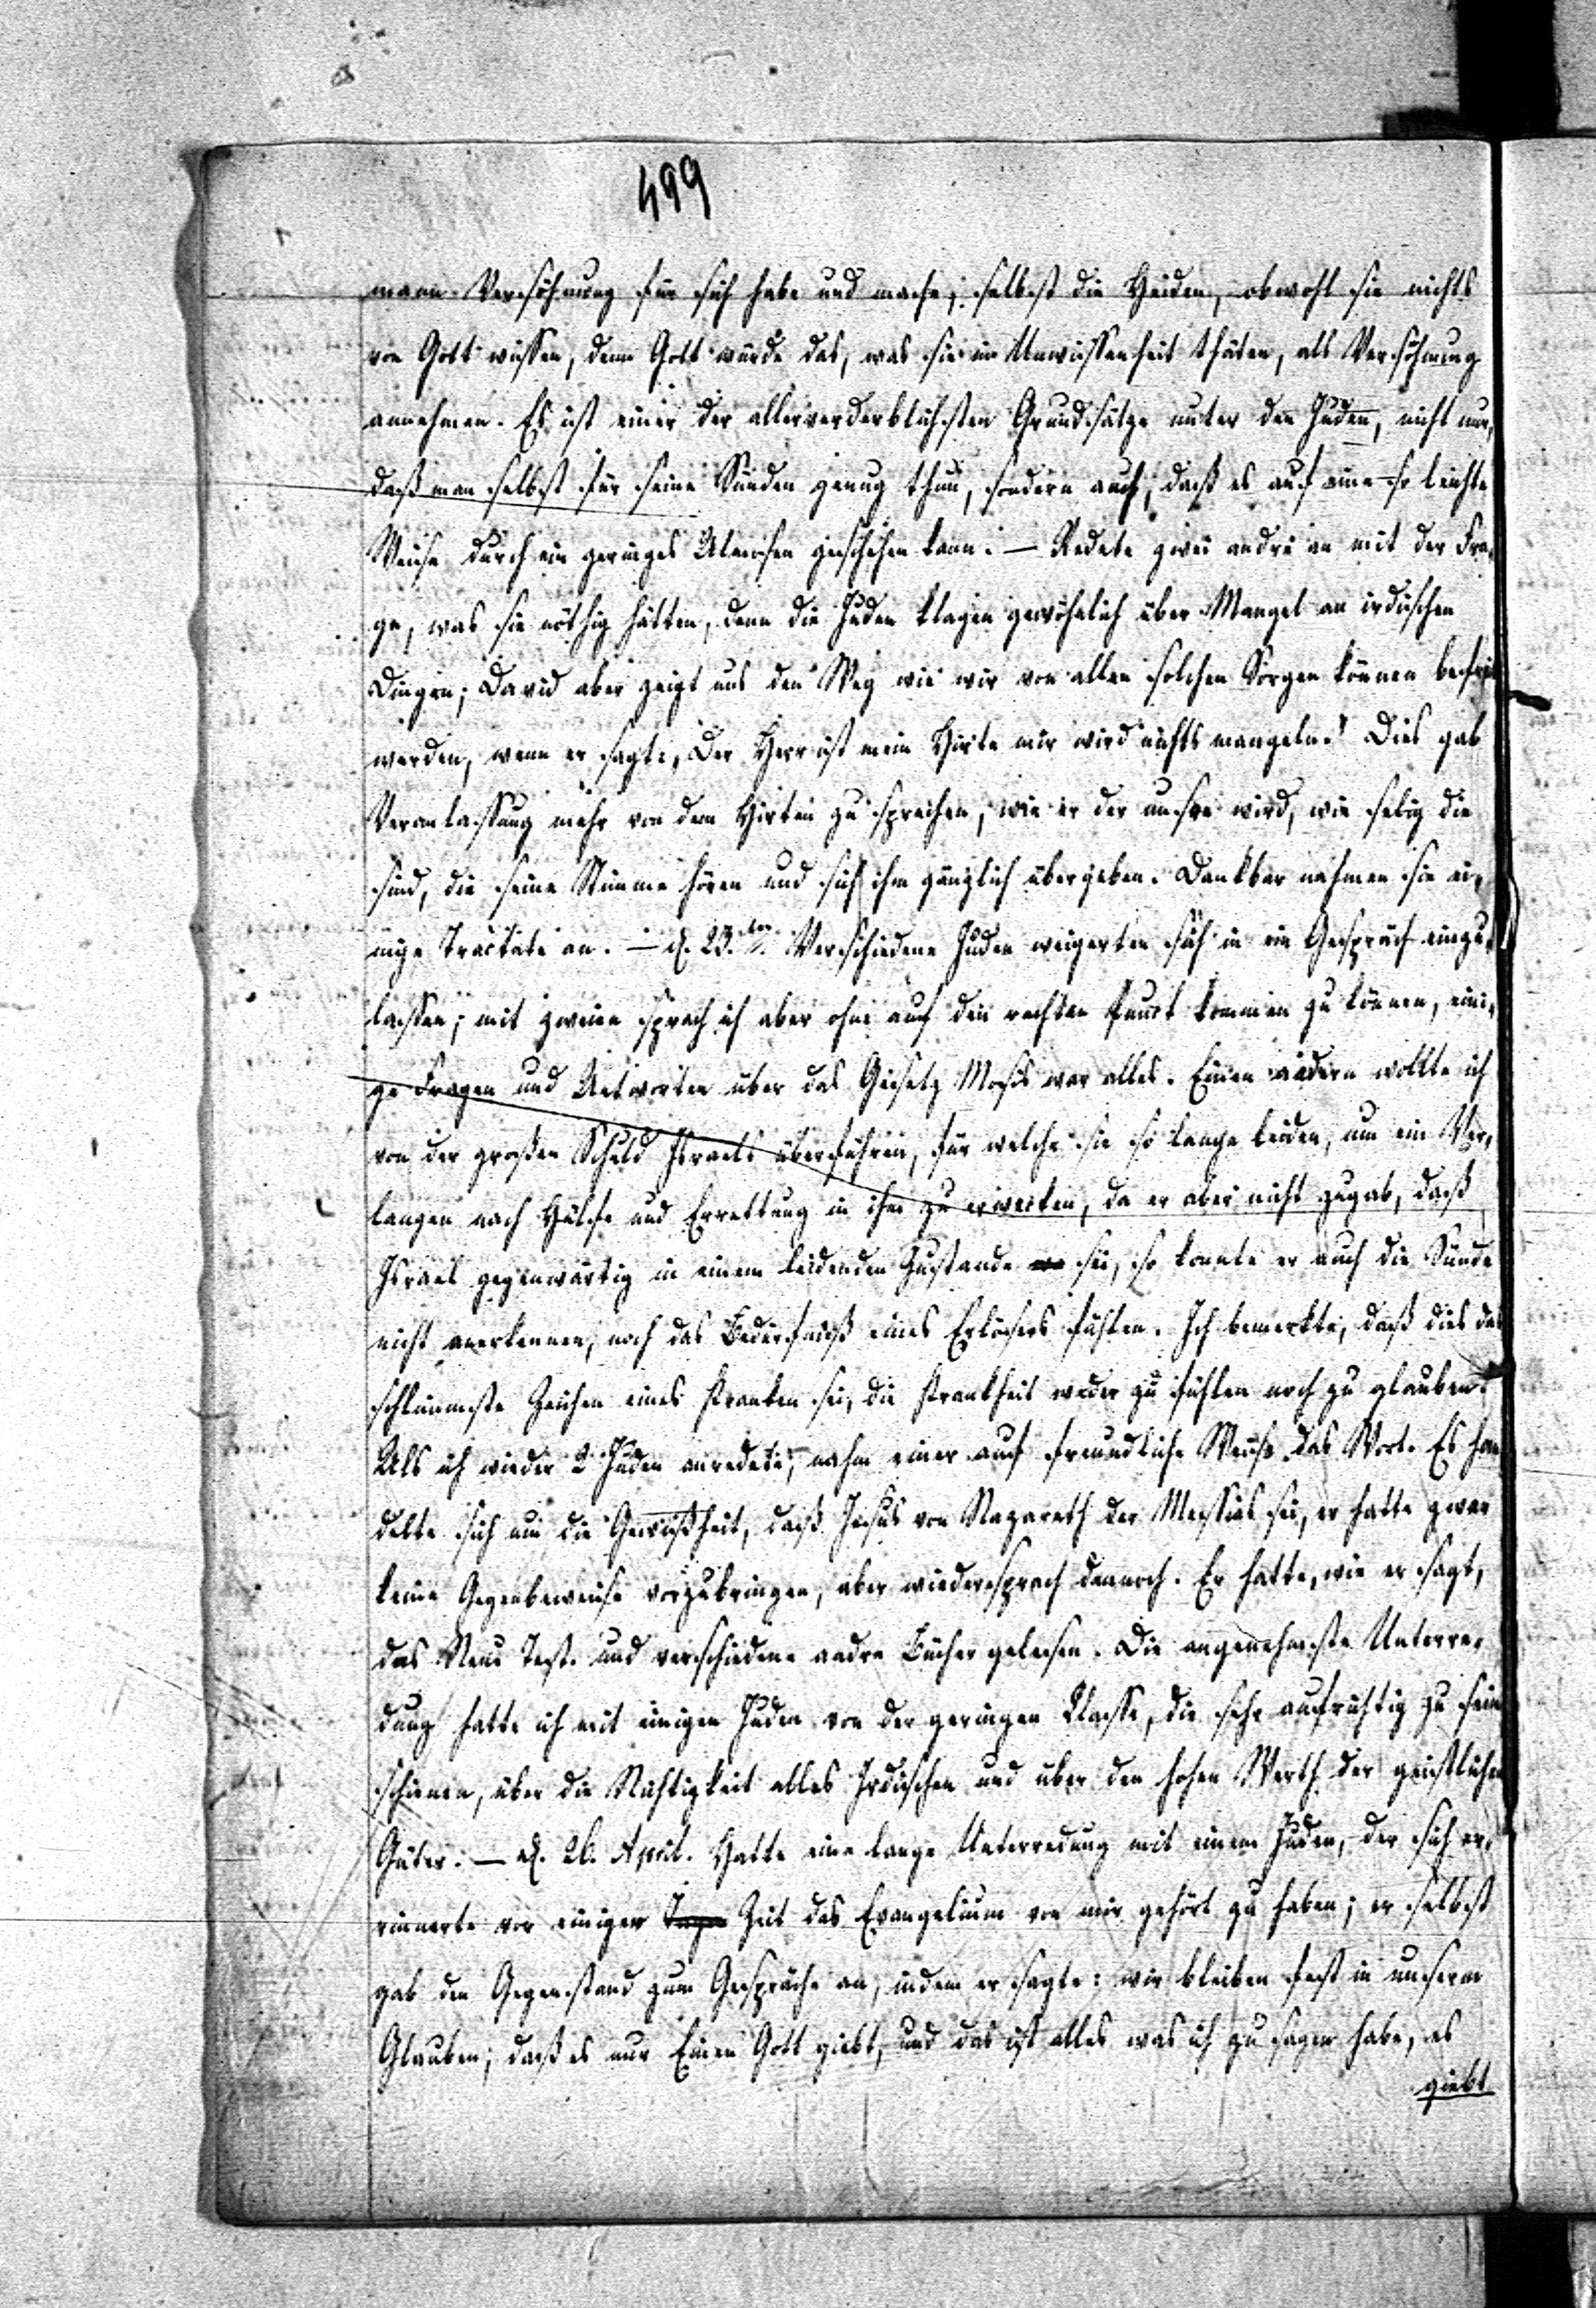 499
mann Versöhnung für sich habe und mache; selbst die Heiden, obwohl sie nichts
von Gott wissen, denn Gott würde das, was sie in Unwissenheit thäten, als Versöhnung
annehmen. Es ist einer der allerverderblichsten Grundsätze unter den Juden, nicht nur,
daß man selbst für seine Sünden genug thun, sondern auch, daß es auf eine so leichte
Weise durch ein geringes Almosen geschehen kann. — Redete zwei andre an mit der Fra-
ge, was sie nöthig hätten, denn die Juden klagen gewöhnlich über Mangel an irdischen
Dingen; David aber zeigt uns den Weg wie wir von allen solchen Sorgen können befreit
werden, wenn er sagte, der Herr ist mein Hirte mir wird nichts mangeln. Dies gab
Veranlassung mehr von dem Hirten zu sprechen, wie er der unsre wird, wie selig die
sind, die seine Stimme hören und sich ihm gänzlich übergeben. Dankbar nahmen sie ei-
nige Tractate an. — d. 23.ten Verschiedene Juden weigerten sich in ein Gespräch einzu-
lassen; mit zweien sprach ich aber ohne auf den rechten Punct kommen zu können, eini-
ge Fragen und Antworten über das Gesetz Mosis war alles. Einen andern wollte ich
von der großen Schuld Israels überführen, für welche sie so lange leiden, um ein Ver-
langen nach Hülfe und Errettung in ihm zu erwecken, da er aber nicht zugab, daß
Israel gegenwärtig in einem leidenden Zustande sei, so konnte er auch die Sünde
nicht anerkennen, noch das Bedürfniß eines Erlösers fühlen. Ich bemerkte, daß dies das
schlimmste Zeichen eines Kranken sei, die Krankheit weder zu fühlen noch zu glauben.
Als ich wieder 2 Juden anredete, nahm einer auf freundliche Weise das Wort. Es han-
delte sich um die Gewißheit, daß Jesus von Nazareth der Messias sei, er hatte zwar
keine Gegenbeweise vorzubringen, aber wiedersprach dennoch. Er hatte, wie er sagt,
das Neue Test. und verschiedene andre Bücher gelesen. Die angenehmste Unterre-
dung hatte ich mit einigen Juden von der geringen Klasse, die sehr aufrichtig zu sein
schienen, über die Nichtigkeit alles Irdischen und über den hohen Werth der geistlichen
Güter. — d. 26. April. Hatte eine lange Unterredung mit einem Juden, der sich er-
innerte vor einiger Tagen Zeit das Evangelium von mir gehört zu haben; er selbst
gab den Gegenstand zum Gespräche an, indem er sagte: wir bleiben fest in unserm
Glauben, daß es nur Einen Gott giebt, und das ist alles was ich zu sagen habe, es
giebt